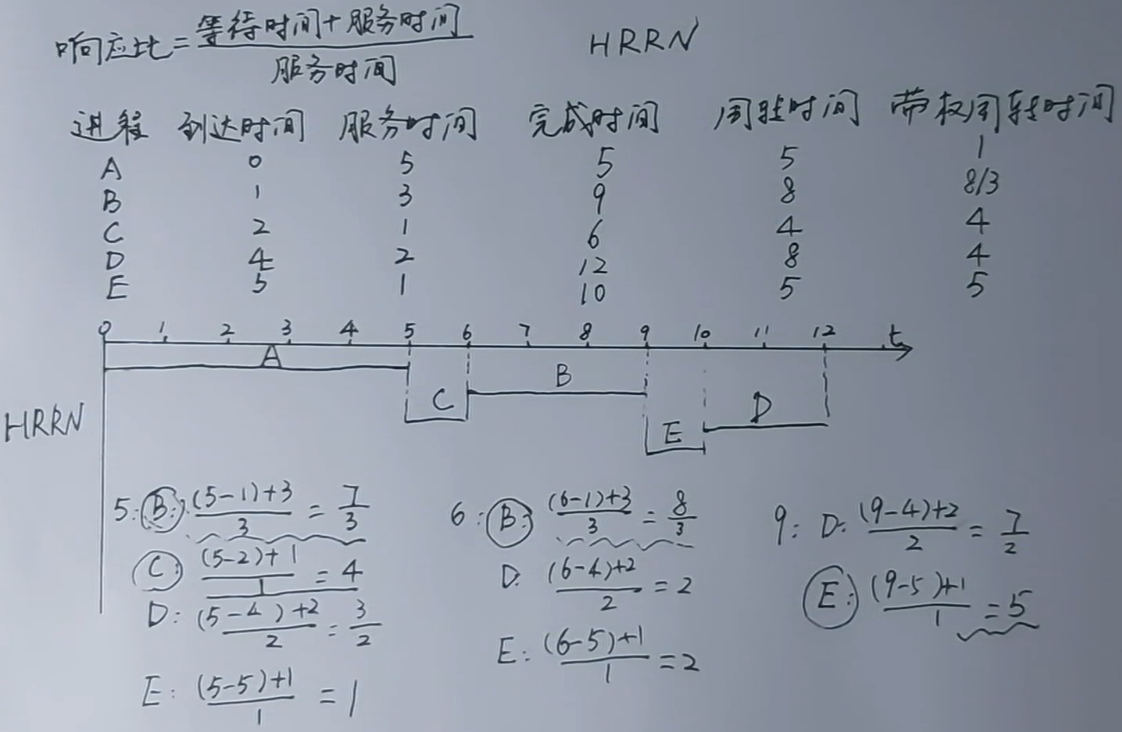 响应比=(等待时间+服务时间)/服务时间 HRRN
进程 到达时间 服务时间 完成时间 周转时间 带权周转时间
A 0 5 5 5 1
B 1 3 9 8 8/3
C 2 1 6 4 4
D 4 2 12 8 4
E 5 1 10 5 5
0 1 2 3 4 5 6 7 8 9 10 11 12 t
HRRN A C B E D
5: B: ((5-1)+3)/3 = 7/3
C: ((5-2)+1)/1 = 4
D: ((5-4)+2)/2 = 3/2
E: ((5-5)+1)/1 = 1
6: B: ((6-1)+3)/3 = 8/3
D: ((6-4)+2)/2 = 2
E: ((6-5)+1)/1 = 2
9: D: ((9-4)+2)/2 = 7/2
E: ((9-5)+1)/1 = 5